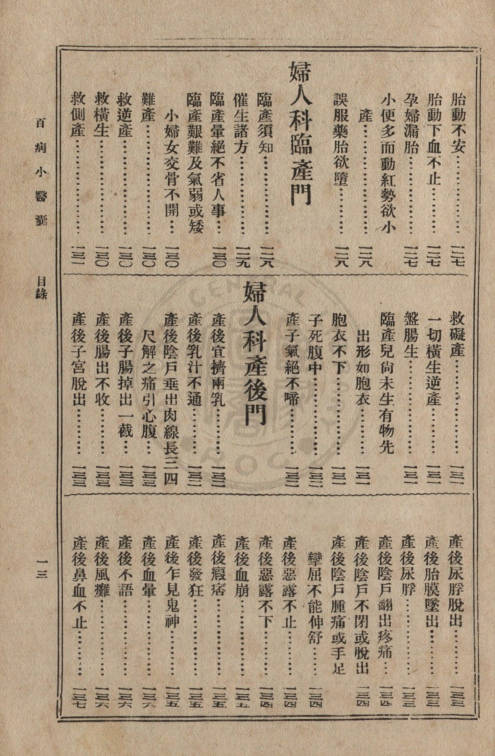 胎動不安……………一二七
胎動下血不止………一二七
孕婦漏胎……………一二七
小便多而動紅勢欲小
產……………一二八
誤服藥胎欲墮………一二八
婦人科臨產門
臨產須知……………一二八
催生諸方……………一二九
臨產暈絕不省人事…一三〇
臨產艱難及氣弱或矮
小婦女交骨不開…一三〇
難產…………………一三〇
救逆產………………一三〇
救橫生………………一三〇
救側產………………一三一
救礙產………………一三一
一切橫生逆產………一三一
盤腸生………………一三一
臨產兒尙未生有物先
出形如胞衣………一三一
胞衣不下……………一三一
子死腹中……………一三一
產子氣絕不啼………一三二
婦人科產後門
產後宜擠兩乳………一三二
產後乳汁不通………一三二
產後陰戶垂出肉線長三四
尺解之痛引心腹…一三三
產後子腸掉出一截…一三三
產後腸出不收………一三三
產後子宮脫出………一三三
產後尿脬脫出………一三三
產後胎膜墜出………一三三
產後尿脬……………一三三
產後陰戶翻出疼痛…一三四
產後陰戶不閉或脫出…一三四
產後陰戶腫痛或手足
攣屈不能伸舒……一三四
產後惡露不止………一三四
產後惡露不下………一三四
產後血崩……………一三五
產後瘕痞……………一三五
產後發狂……………一三五
產後乍見鬼神………一三五
產後血暈……………一三六
產後不語……………一三六
產後風癱……………一三六
產後鼻血不止………一三七
百病小醫囊 目錄 一三